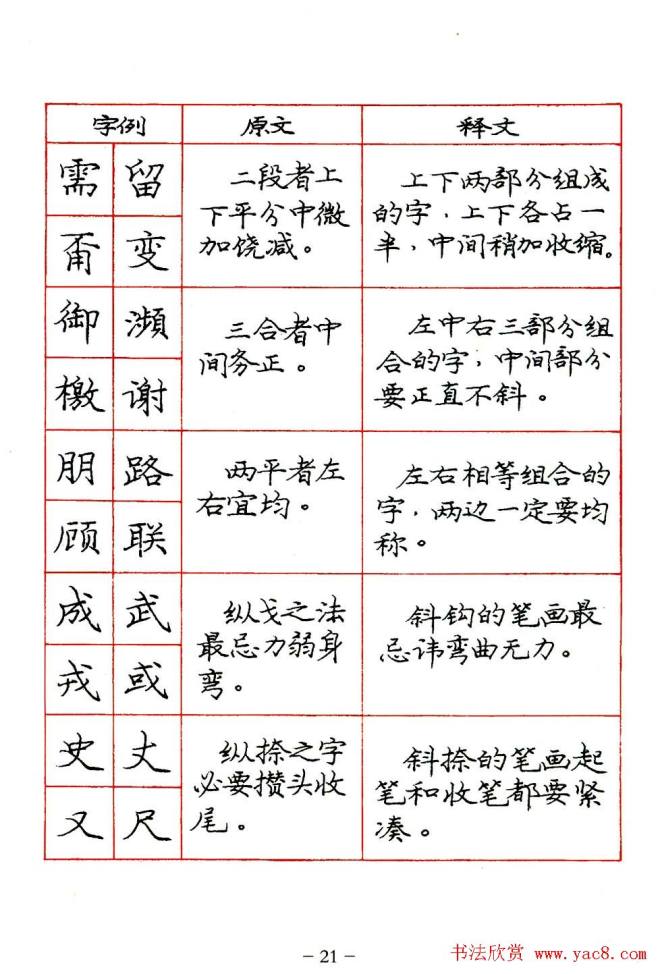 字例 原文 释文
需 留
二段者上
下平分中微
加饶减。
上下两部分组成
的字，上下各占一
半，中间稍加收缩。
甭 变
御 濒
三合者中
间务正。
左中右三部分组
合的字，中间部分
要正直不斜。
檄 谢
朋 路
两平者左
右宜均。
左右相等组合的
字，两边一定要均
称。
顾 联
成 武
纵戈之法
最忌力弱身
弯。
斜钩的笔画最
忌讳弯曲无力。
戎 或
史 丈
纵捺之字
必要攒头收
尾。
斜捺的笔画起
笔和收笔都要紧
凑。
又 尺
－21－
书法欣赏 www.yac8.com